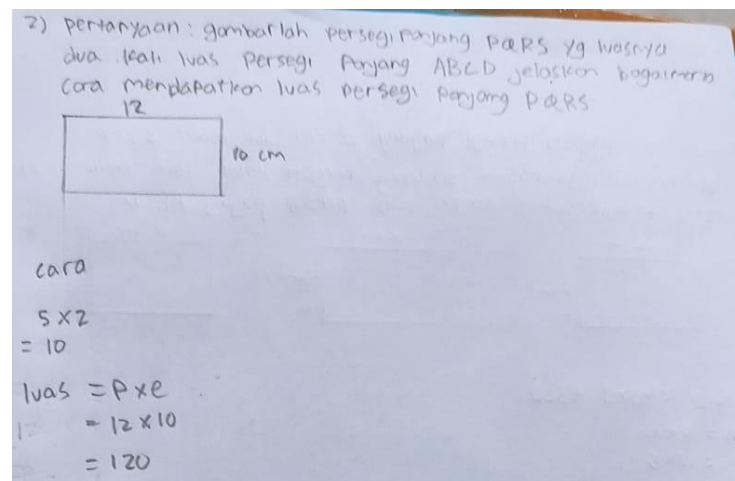 2) pertanyaan : gambarlah persegi panjang PQRS yg luasnya
dua kali luas persegi panjang ABCD jelaskan bagaimana
cara mendapatkan luas persegi panjang PQRS
12
10 cm
cara
5 x 2
= 10
luas = P x l
= 12 x 10
= 120